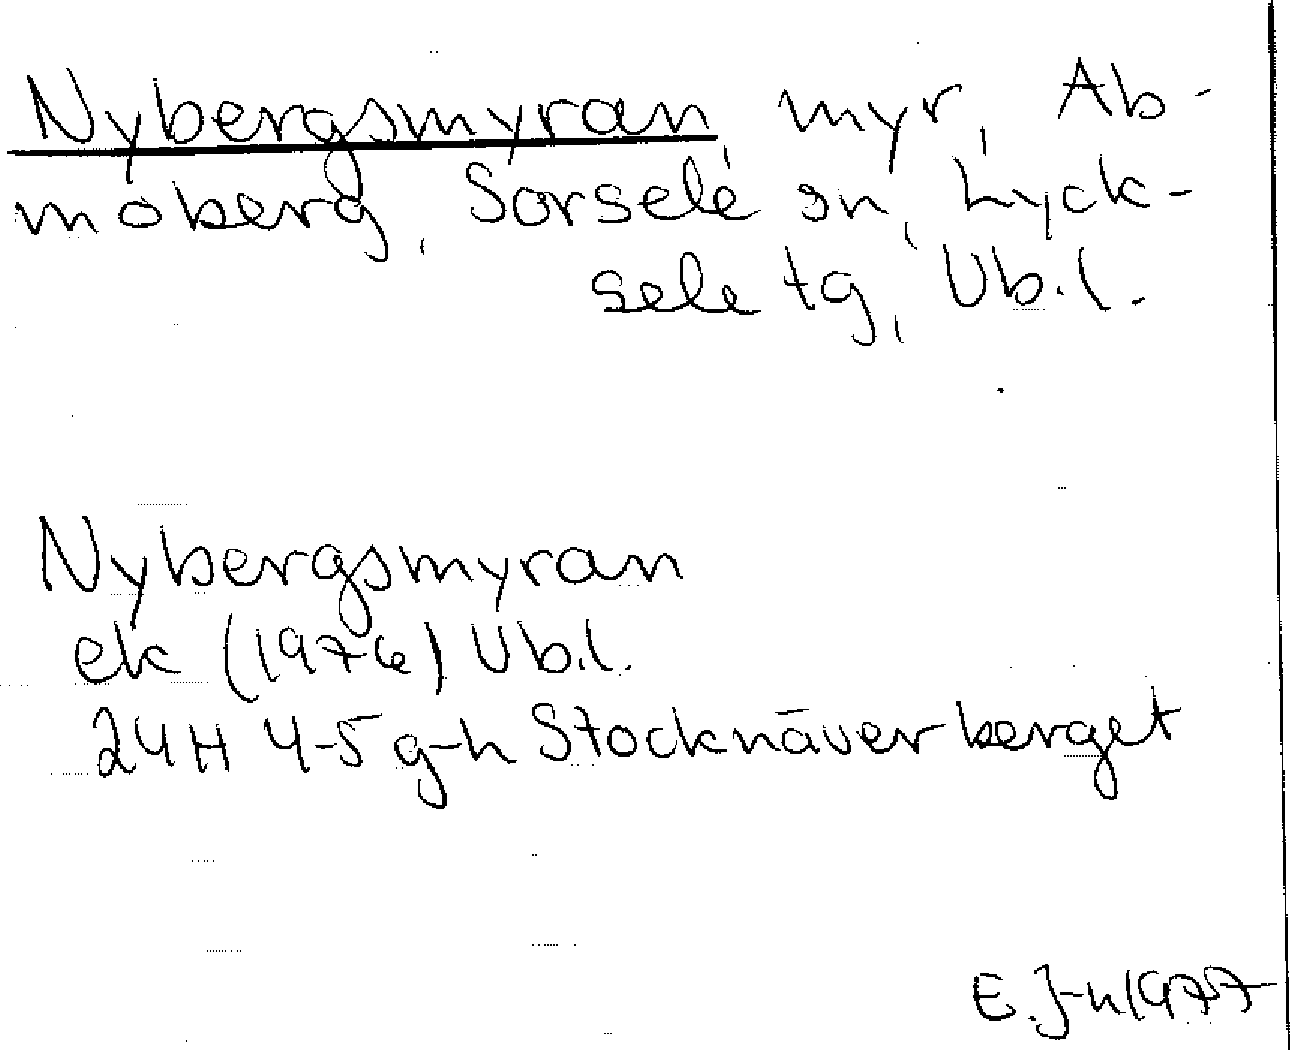 Nybergsmyran myr, Ab-
moberg, Sorsele sn, Lyck-
sele tg, Vb.l.
Nybergsmyran
ek (1976) Vb.l.
24H 4-5 g-h Stocknäverberget
E. J-n 1977